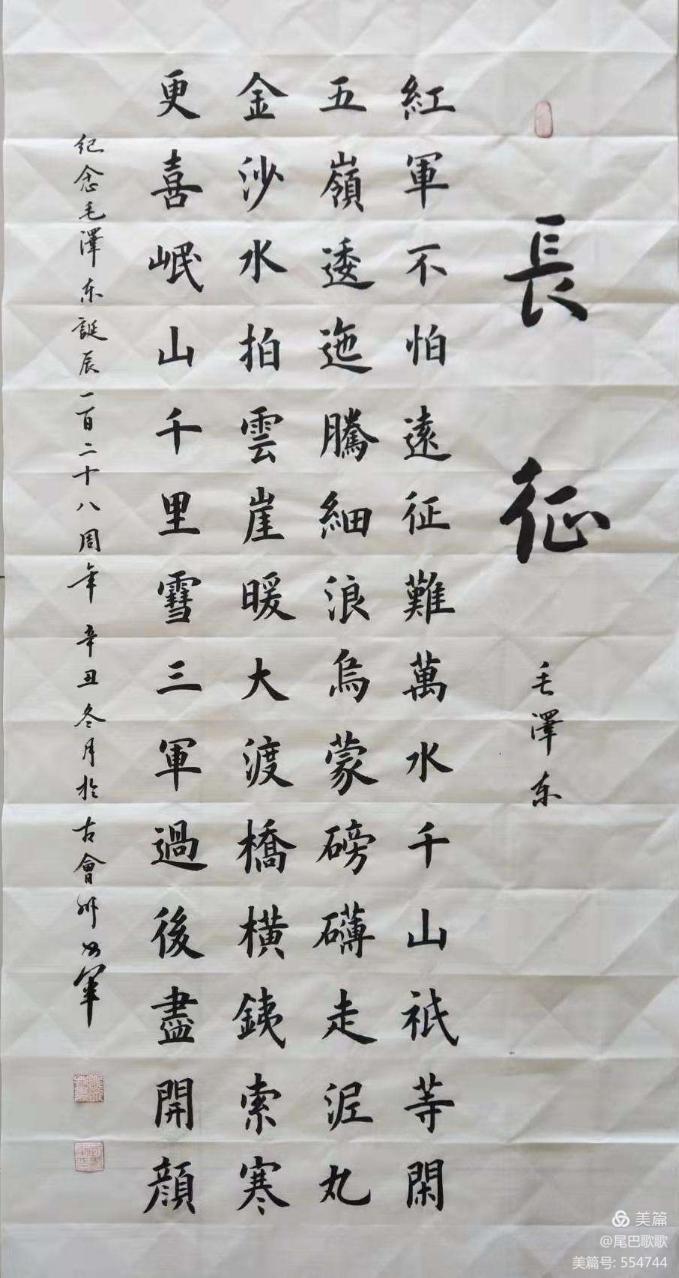 長征
毛澤东
紅軍不怕遠征難萬水千山祇等閑
五嶺逶迤騰細浪烏蒙磅礴走泥丸
金沙水拍雲崖暖大渡橋横鐵索寒
更喜岷山千里雪三軍過後盡開顔
纪念毛澤东誕辰一百二十八周年辛丑冬月於古會州
美篇
@尾巴歌歌
美篇号: 554744